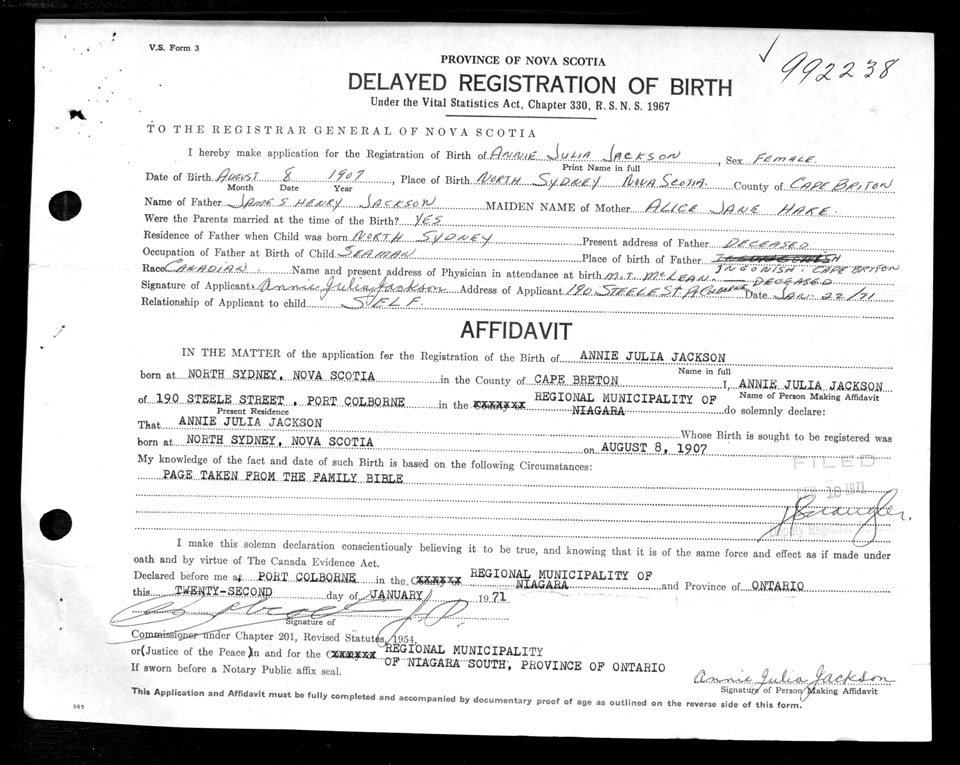 V.S. Form 3
992238
PROVINCE OF NOVA SCOTIA
DELAYED REGISTRATION OF BIRTH
Under the Vital Statistics Act, Chapter 330, R.S.N.S. 1967
TO THE REGISTRAR GENERAL OF NOVA SCOTIA
I hereby make application for the Registration of Birth of ANNIE JULIA JACKSON, Sex FEMALE.
Print Name in full
Date of Birth AUGUST 8 1907, Place of Birth NORTH SYDNEY NOVA SCOTIA. County of CAPE BRITON
Month Date Year
Name of Father JAMES HENRY JACKSON MAIDEN NAME of Mother ALICE JANE HARE.
Were the Parents married at the time of the Birth? YES
Residence of Father when Child was born NORTH SYDNEY Present address of Father DECEASED
Occupation of Father at Birth of Child SEAMAN Place of birth of Father
INGONISH. CAPE BRITON
Race CANADIAN. Name and present address of Physician in attendance at birth M.T. McLEAN. — DECEASED
Signature of Applicant Annie Julia Jackson Address of Applicant 190 STEELE ST. Pt COLBORNE Date JAN. 22/71
Relationship of Applicant to child SELF.
AFFIDAVIT
IN THE MATTER of the application for the Registration of the Birth of ANNIE JULIA JACKSON
Name in full
born at NORTH SYDNEY, NOVA SCOTIA in the County of CAPE BRETON I, ANNIE JULIA JACKSON
Name of Person Making Affidavit
of 190 STEELE STREET, PORT COLBORNE in the xxxxxxx REGIONAL MUNICIPALITY OF
NIAGARA do solemnly declare:
Present Residence
That ANNIE JULIA JACKSON Whose Birth is sought to be registered was
born at NORTH SYDNEY, NOVA SCOTIA on AUGUST 8, 1907
My knowledge of the fact and date of such Birth is based on the following Circumstances:
PAGE TAKEN FROM THE FAMILY BIBLE
FILED
FEB 18 1971
Deputy Registrar
I make this solemn declaration conscientiously believing it to be true, and knowing that it is of the same force and effect as if made under
oath and by virtue of The Canada Evidence Act.
Declared before me at PORT COLBORNE in the xxxxxx REGIONAL MUNICIPALITY OF
NIAGARA and Province of ONTARIO
this TWENTY-SECOND day of JANUARY 1971
Signature of
Commissioner under Chapter 201, Revised Statutes, 1954,
or (Justice of the Peace) in and for the xxxxxx REGIONAL MUNICIPALITY
OF NIAGARA SOUTH, PROVINCE OF ONTARIO
If sworn before a Notary Public affix seal.
Annie Julia Jackson
Signature of Person Making Affidavit
This Application and Affidavit must be fully completed and accompanied by documentary proof of age as outlined on the reverse side of this form.
385